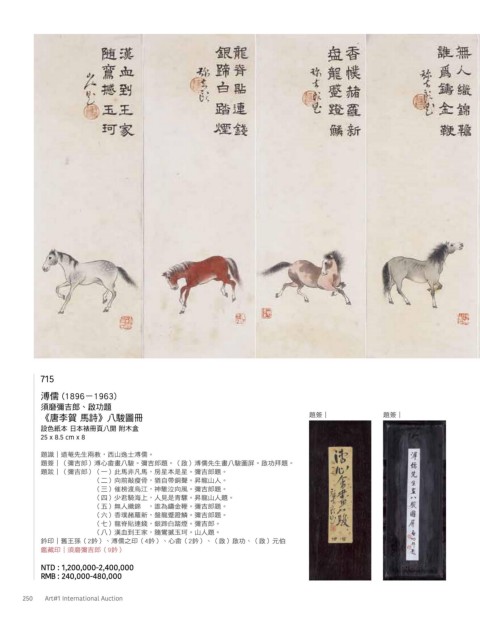 無人織錦韂
誰為鑄金鞭
香襆赭羅新
盤龍蹙鐙鱗
龍脊貼連錢
銀蹄白踏煙
漢血到王家
隨鸞撼玉珂
715
溥儒 (1896－1963)
須磨彌吉郎、啟功題
《唐李賀 馬詩》八駿圖冊
設色紙本 日本裱冊頁八開 附木盒
25 x 8.5 cm x 8
題識｜道菴先生兩教，西山逸士溥儒。
題簽｜(彌吉郎) 溥心畬畫八駿。彌吉郎題。(啟) 溥儒先生畫八駿圖屏。啟功拜題。
題跋｜(彌吉郎) (一) 此馬非凡馬，房星本是星。彌吉郎題。
(二) 向前敲瘦骨，猶自帶銅聲。昇龍山人。
(三) 催榜渡烏江，神騅泣向風。彌吉郎題。
(四) 少君騎海上，人見是青騾。昇龍山人題。
(五) 無人織錦　，誰為鑄金鞭。彌吉郎題。
(六) 香襆赭羅新，盤龍蹙鐙鱗。彌吉郎題。
(七) 龍脊貼連錢，銀蹄白踏煙。彌吉郎。
(八) 漢血到王家，隨鸞撼玉珂。山人題。
鈐印｜舊王孫 (2鈐)、溥儒之印 (4鈐)、心畬 (2鈐)、(啟) 啟功、(啟) 元伯
鑑藏印｜須磨彌吉郎 (9鈐)
NTD : 1,200,000-2,400,000
RMB : 240,000-480,000
題簽｜
題簽｜
溥心畬畫八駿
溥儒先生畫八駿圖屏
250 Art#1 International Auction